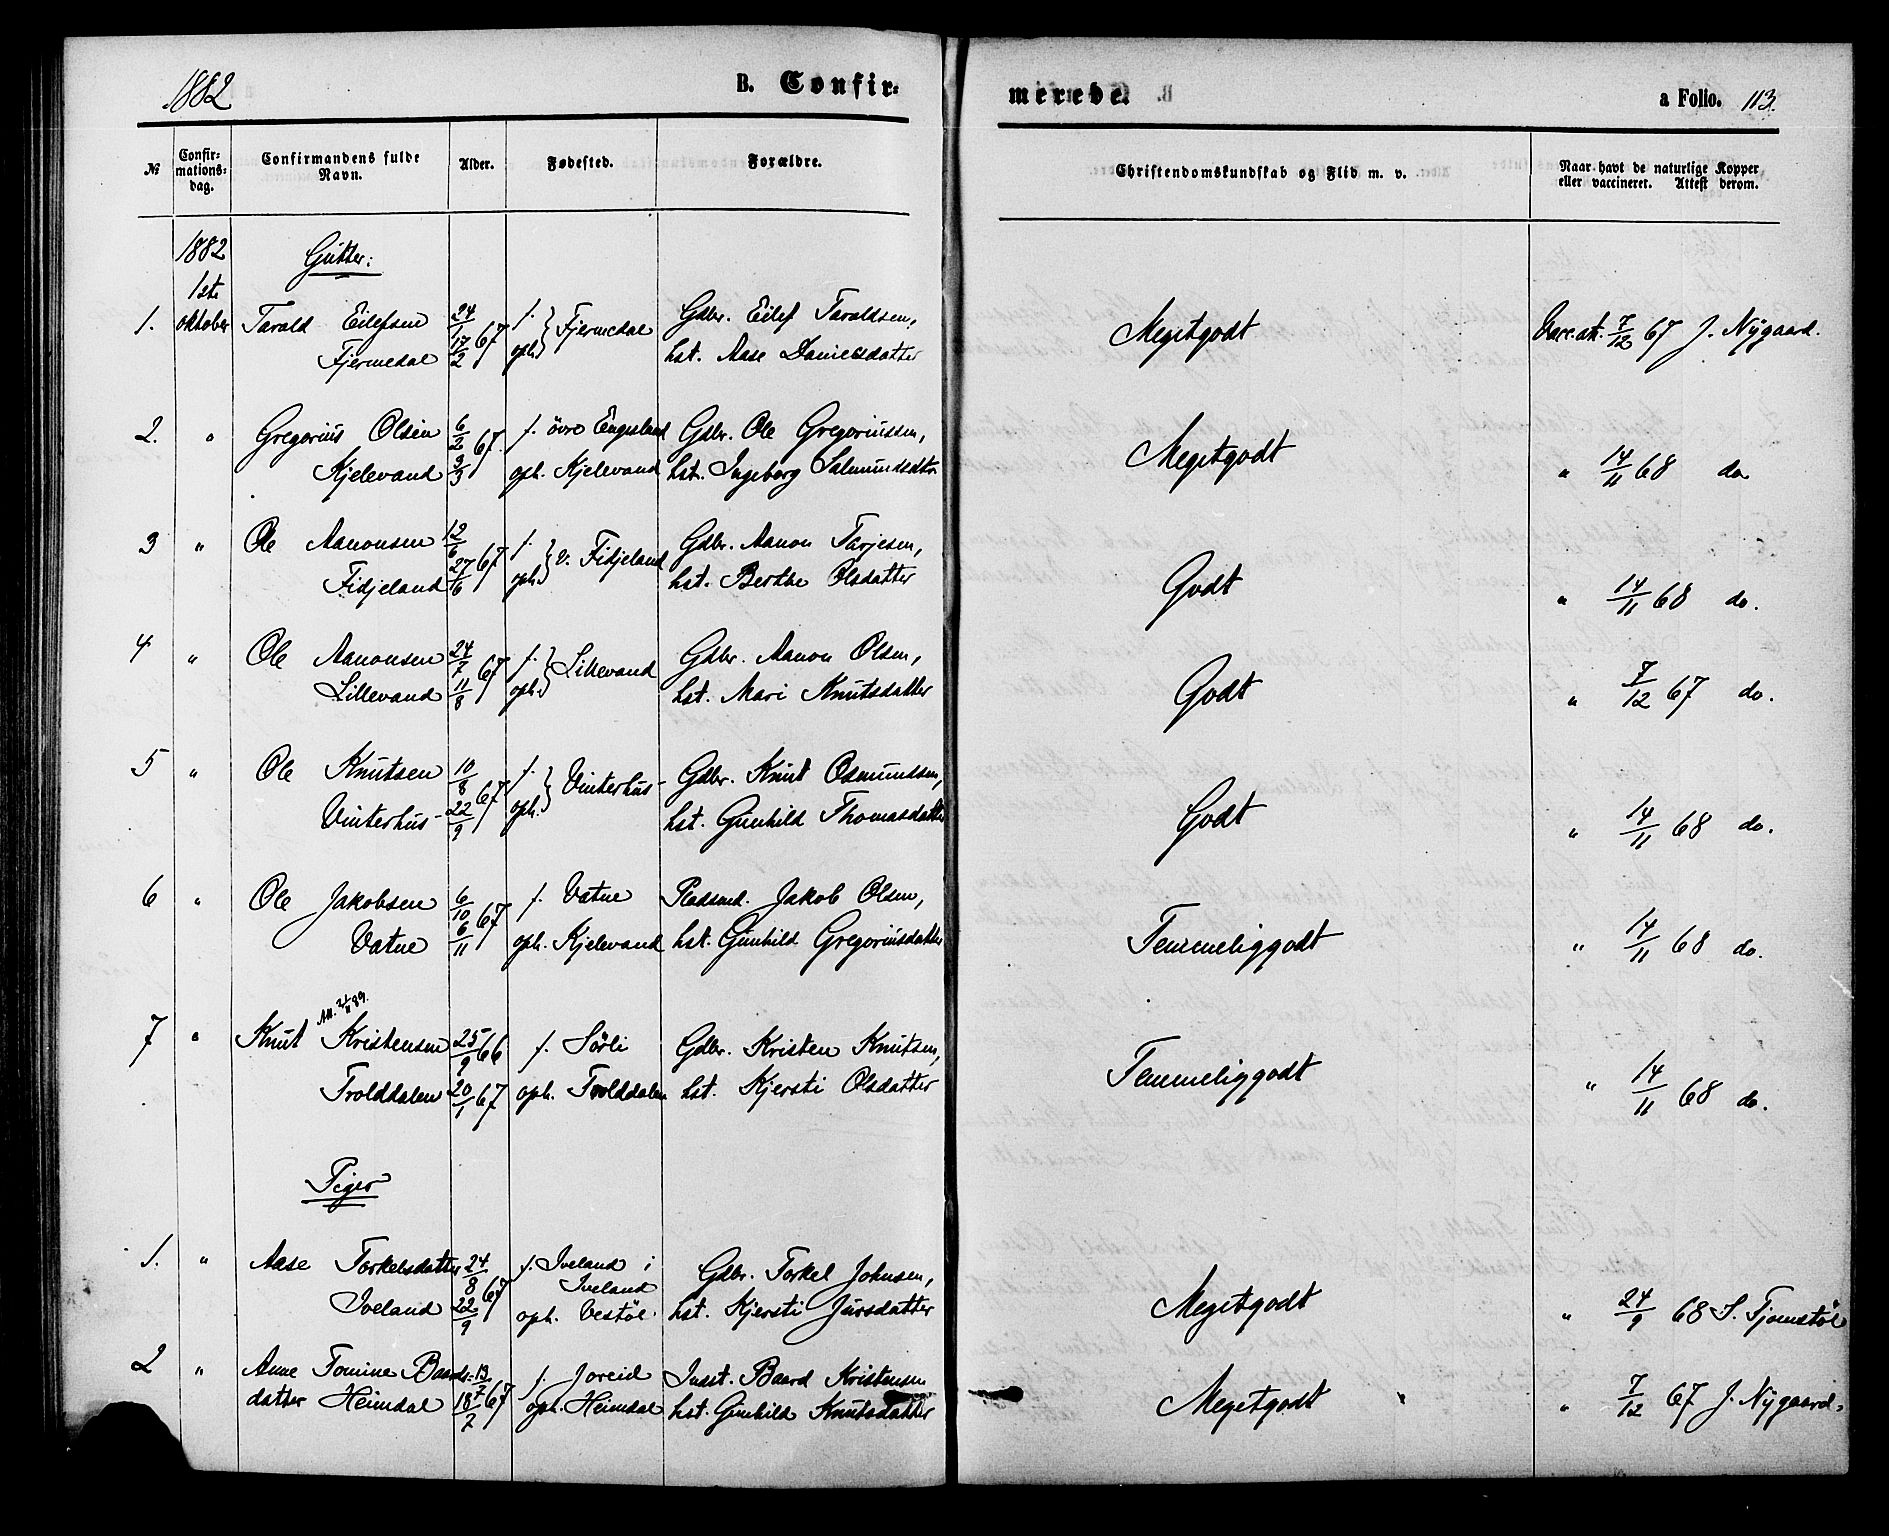 1882
B. Confir-
merede.
a Folio. 113.
№
Confir-
mations-
dag.
Confirmandens fulde
Navn.
Alder.
Fødested.
Forældre.
Christendomskundskab og Flid m. v.
Naar havt de naturlige Kopper
eller vaccineret. Attest derom.
1882 Gutter:
1ste
1. oktober Tarald Eilefsen 24/1 67 f. Fjermedal Gdbr. Eilef Taraldsen, Megetgodt Vacc. att. 7/12 67 J. Nygaard.
Fjermedal 17/2 oph. hst. Aase Danielsdatter
2. " Gregorius Olsen 6/2 67. f. övre Engesland Gdbr. Ole Gregoriussen, Megetgodt " 14/11 68 do
Kjelevand 3/3 oph. Kjelevand hst. Ingeborg Salmundsdtr
3 " Ole Aanonsen 12/6 67 f. v. Fidjeland Gdbr. Aanon Tarjesen, Godt " 14/11 68 do.
Fidjeland 27/6 oph. hst. Berthe Olsdatter
4 " Ole Aanonsen 24/7 67 f. Lillevand Gdbr. Aanon Olsen, Godt " 7/12 67 do.
Lillevand 11/8 oph. hst. Mari Knutsdatter
5 " Ole Knutsen 10/8 67 f. Vinterhus- Gdbr. Knut Osmundsen, Godt " 14/11 68 do.
Vinterhus- 22/9 oph. hst. Gunhild Thomasdatter
6 " Ole Jakobsen 6/10 67 f. Vatne Pladsmd. Jakob Olsen, Temmeliggodt " 14/11 68 do.
Vatne 6/11 oph. Kjelevand hst. Gunhild Gregoriusdatter
Att. 89.
7 " Knut Kristensen 25/9 66 f. Sörli Gdbr. Kristen Knutsen, Temmeliggodt " 14/11 68 do.
Trolddalen 20/1 67 oph. Trolddalen hst. Kjersti Olsdatter
Piger
1. " Aase Torkelsdatter 24/8 67 f. Iveland i Gdbr. Torkel Johnsen, Megetgodt " 24/9 68 S. Tjomstöl
Iveland
Iveland 22/9 oph. Vestöl. hst. Kjersti Jursdatter
2 " Anne Tomine Baards- 13/7 67 f. Joreid Indst. Baard Kristensen Megetgodt " 7/12 67 J. Nygaard.
datter Heimdal 18/7 oph. Heimdal hst. Gunhild Knutsdatter